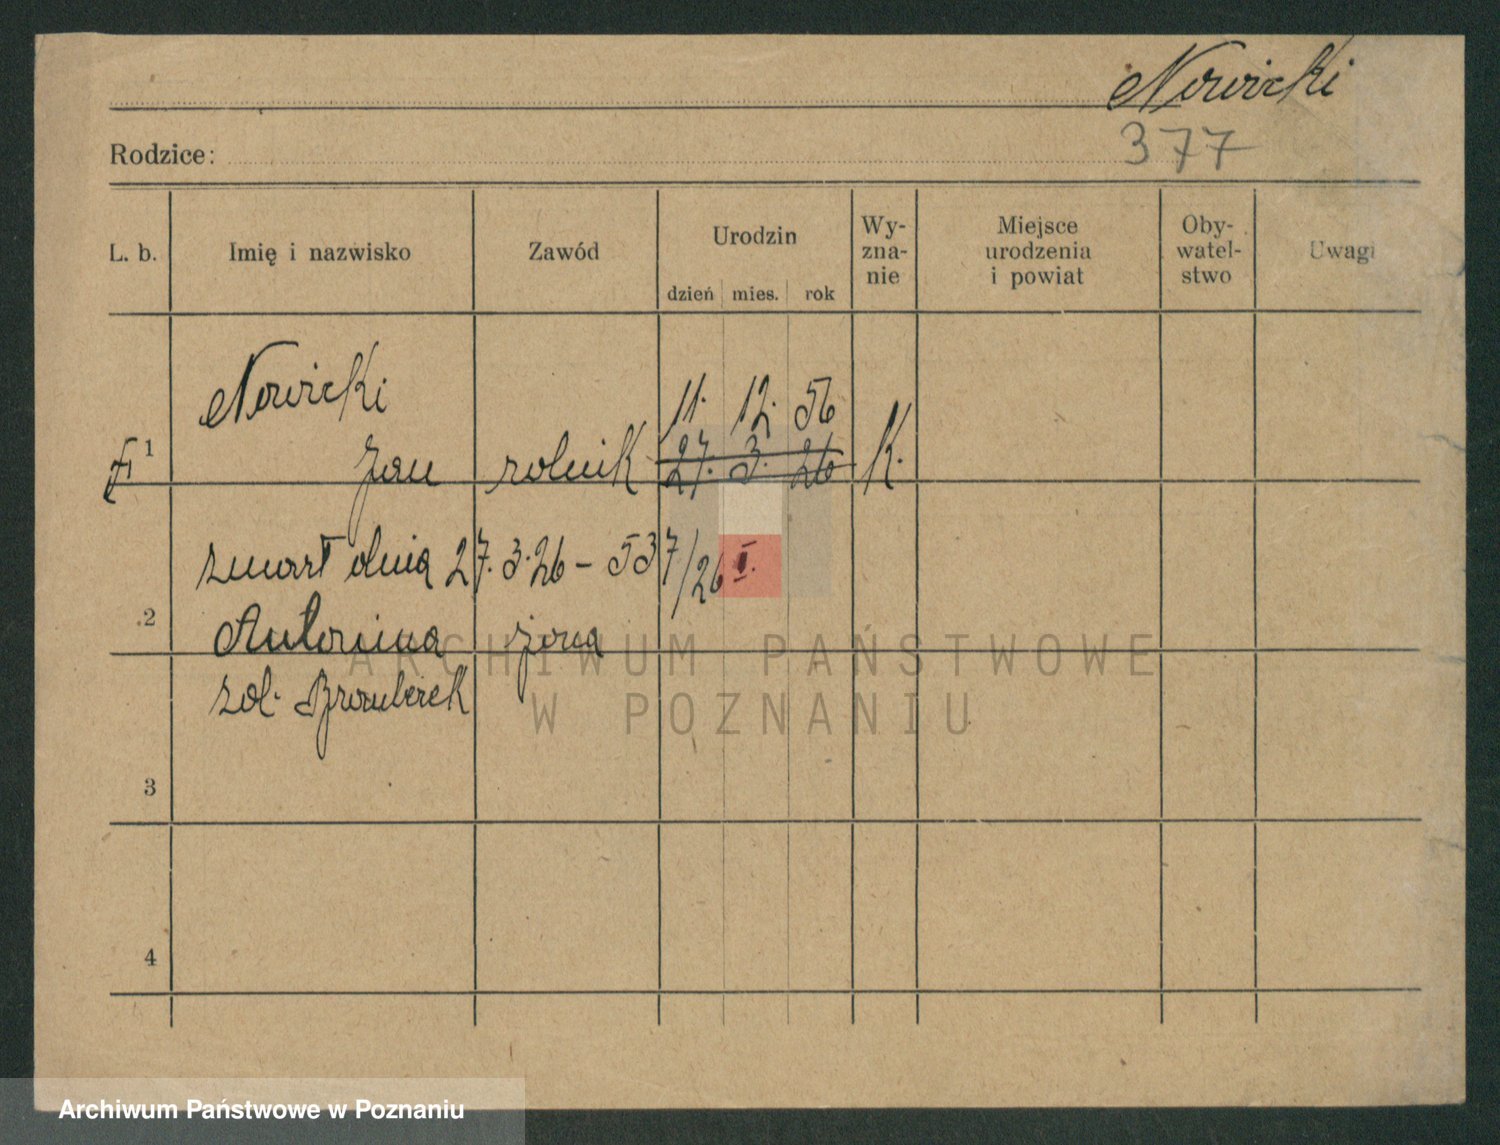 Nowicki
Rodzice:
377
L. b.
Imię i nazwisko
Zawód
Urodzin
dzień mies. rok
Wy-
zna-
nie
Miejsce
urodzenia
i powiat
Oby-
watel-
stwo
Uwagi
Nowicki
11. 12. 56
1 Jan rolnik 27. 3. 26 K.
zmarł dnia 27.3.26 – 537/26 II.
2 Antonina żona
3
4
ARCHIWUM PAŃSTWOWE
W POZNANIU
Archiwum Państwowe w Poznaniu